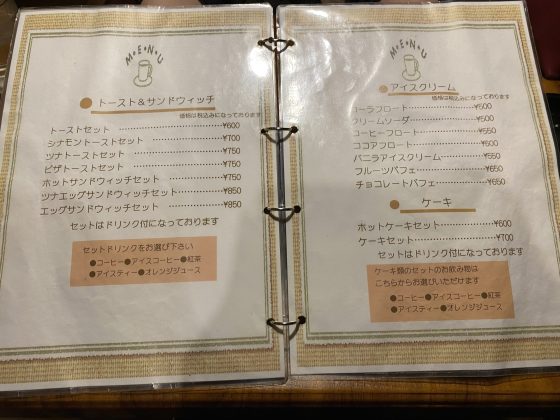 M・E・N・U
●トースト&サンドウィッチ
価格は税込みになっております
トーストセット ………………¥600
シナモントーストセット ………………¥700
ツナトーストセット ………………¥750
ピザトーストセット ………………¥750
ホットサンドウィッチセット………………¥750
ツナエッグサンドウィッチセット………………¥850
エッグサンドウィッチセット………………¥850
セットはドリンク付になっております
セットドリンクをお選び下さい
●コーヒー●アイスコーヒー●紅茶
●アイスティー●オレンジジュース
M・E・N・U
●アイスクリーム
価格は税込みになっております
コーラフロート………………¥500
クリームソーダ………………¥500
コーヒーフロート………………¥550
ココアフロート………………¥600
バニラアイスクリーム………………¥550
フルーツパフェ………………¥650
チョコレートパフェ………………¥650
●ケーキ
ホットケーキセット………………¥600
ケーキセット………………¥700
セットはドリンク付になっております
ケーキ類のセットのお飲み物は
こちらからお選びいただけます
●コーヒー●アイスコーヒー●紅茶
●アイスティー●オレンジジュース